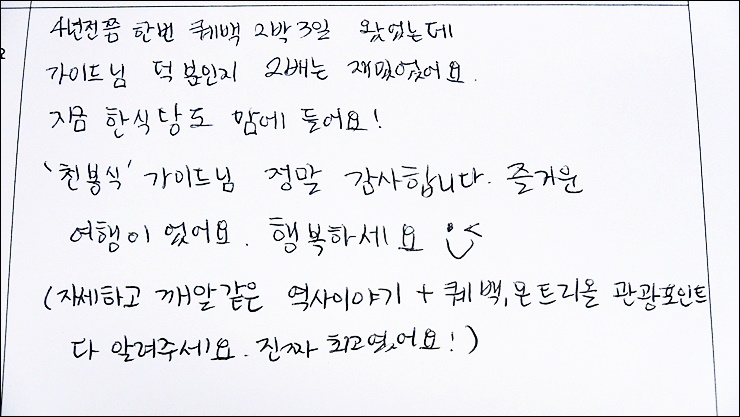 4년전쯤 한번 퀘백 2박3일 왔었는데
가이드님 덕분인지 2배는 재밌었어요.
지금 한식당도 맘에 들어요!
'천봉식' 가이드님 정말 감사합니다. 즐거운
여행이 었어요. 행복하세요
(자세하고 깨알같은 역사이야기 + 퀘백,몬트리올 관광포인트
다 알려주세요. 진짜 최고였어요!)